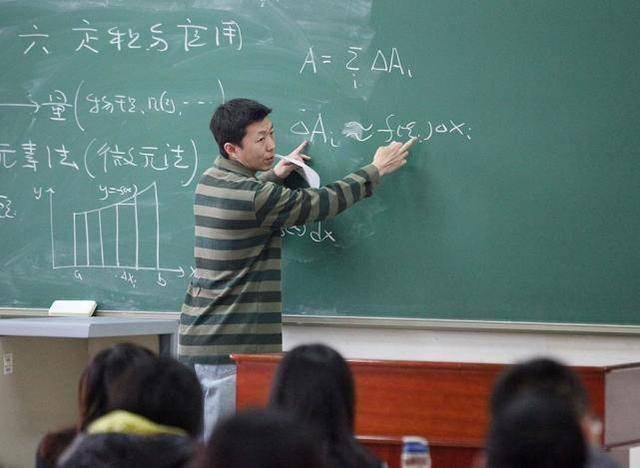 六 定积分应用
→量(物理,几何,…)
元素法(微元法)
y
y=f(x)
a Δxᵢ b x
A = Σᵢ ΔAᵢ
ΔAᵢ ≈ f(ξᵢ)Δxᵢ
(x) dx